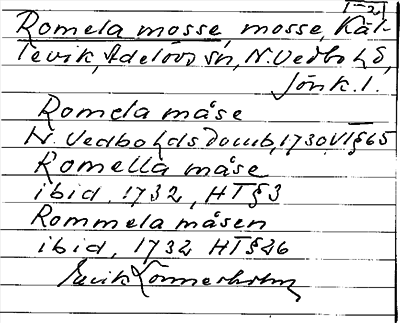 I-2
Romela mosse, mosse, Käl-
levik, Adelövs sn, N. Vedbo hd,
Jönk. l.
Romela måse
N. Vedbo hds domb, 1730 VT§65
Romella måse
ibid, 1732, HT§3
Rommela måsen
ibid, 1732 HT§26
Erik